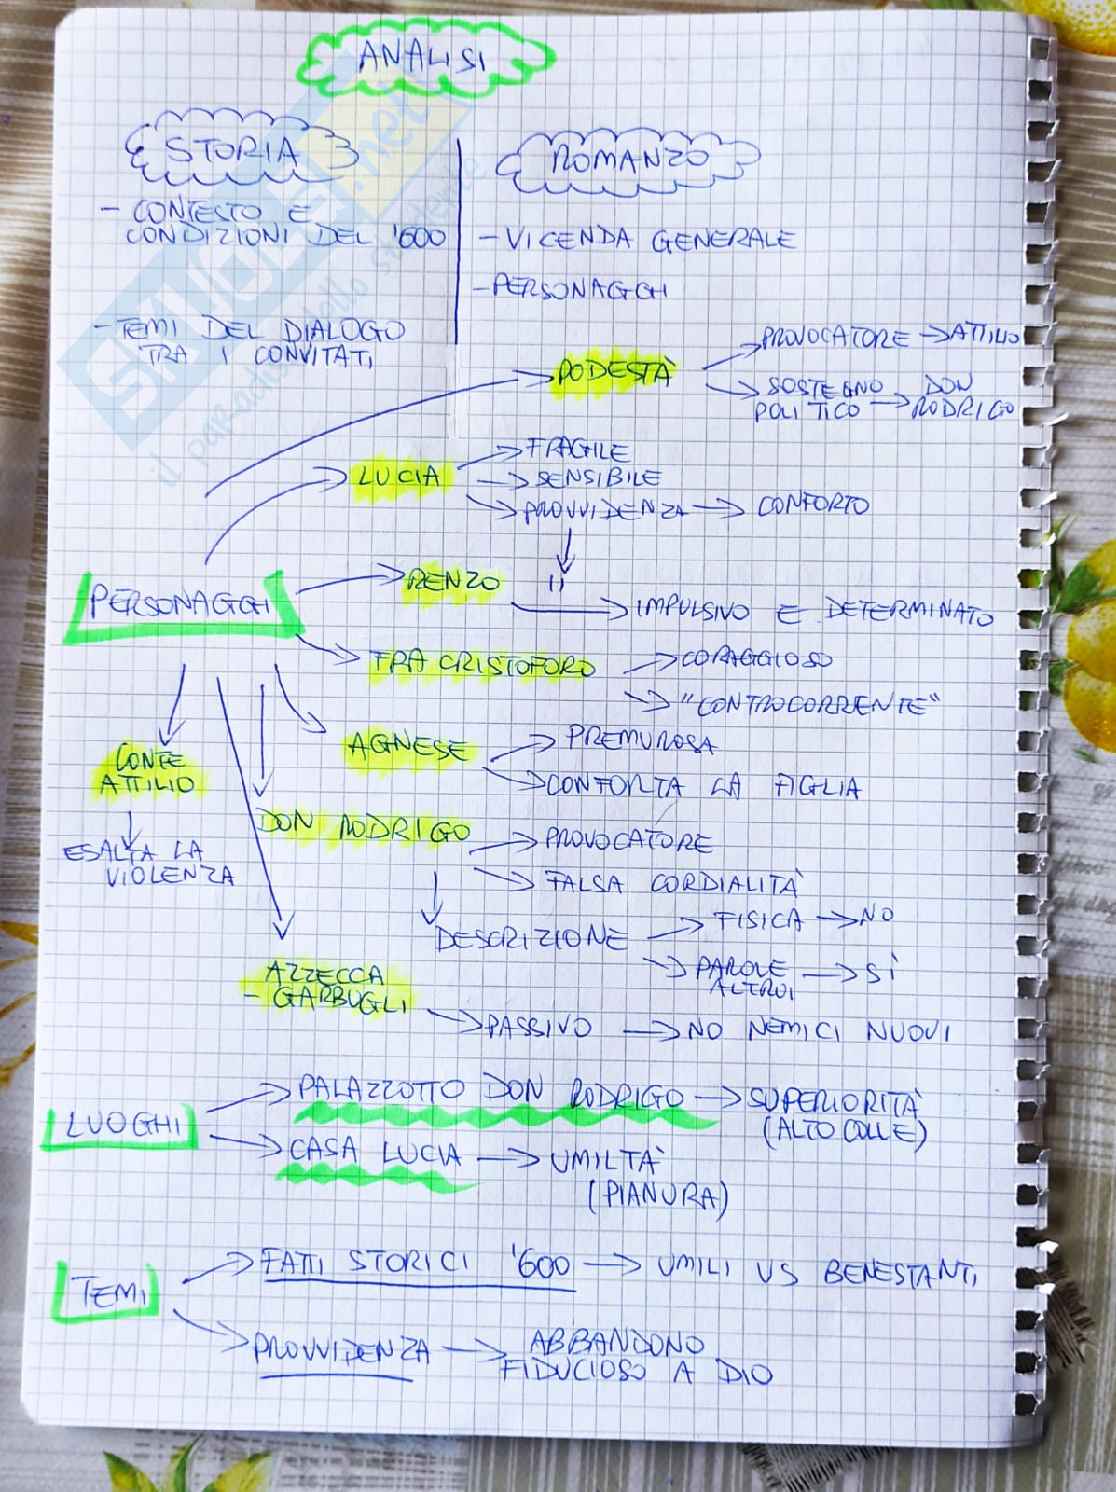 ANALISI
STORIA
- CONTESTO E
CONDIZIONI DEL '600
- TEMI DEL DIALOGO
TRA I CONVITATI
ROMANZO
- VICENDA GENERALE
- PERSONAGGI
PERSONAGGI
PODESTÀ
PROVOCATORE → ATTILIO
SOSTEGNO
POLITICO → DON
RODRIGO
LUCIA
→ FRAGILE
→ SENSIBILE
→ PROVVIDENZA → CONFORTO
RENZO
"
→ IMPULSIVO E DETERMINATO
FRA CRISTOFORO
→ CORAGGIOSO
→ "CONTROCORRENTE"
AGNESE
→ PREMUROSA
→ CONFORTA LA FIGLIA
CONTE
ATTILIO
ESALTA LA
VIOLENZA
DON RODRIGO
→ PROVOCATORE
→ FALSA CORDIALITÀ
DESCRIZIONE
→ FISICA → NO
→ PAROLE
ALTRUI → SÌ
AZZECCA
- GARBUGLI
→ PASSIVO → NO NEMICI NUOVI
LUOGHI
→ PALAZZOTTO DON RODRIGO → SUPERIORITÀ
(ALTO COLLE)
→ CASA LUCIA → UMILTÀ
(PIANURA)
TEMI
→ FATTI STORICI '600 → UMILI VS BENESTANTI
→ PROVVIDENZA → ABBANDONO
FIDUCIOSO A DIO
SKUOLA.net
il paradiso dello studente